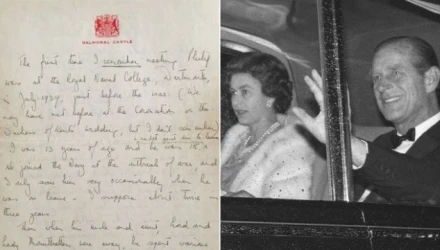 BALMORAL CASTLE
The first time I remember meeting Philip
was at the Royal Naval College, Dartmouth,
in July 1939, just before the war. (We
may have met before at the Coronation or the
Duchess of Kent's wedding, but I don't
I was 13 years of age and he was 18
He joined the Navy at the outbreak of war and
I only saw him very occasionally when he
was on leave - I suppose about twice in
three years
Then when his uncle and aunt, Lord and
Lady Mountbatten were away, he spent various